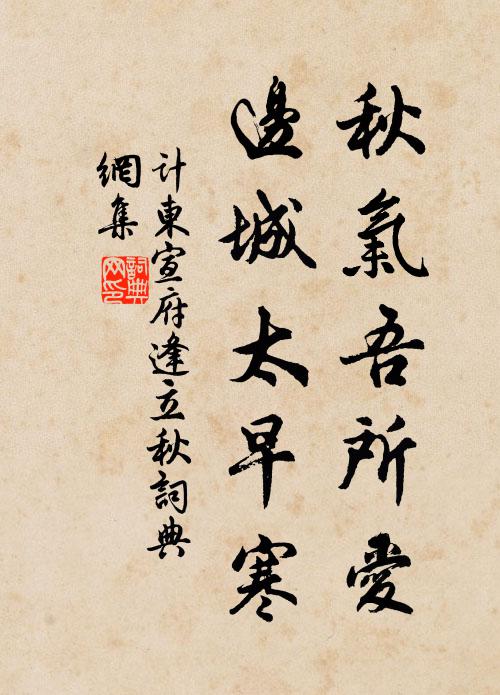 秋氣吾所愛
邊城太早寒
計東宣府逢立秋詞典
網集
詞典
网印